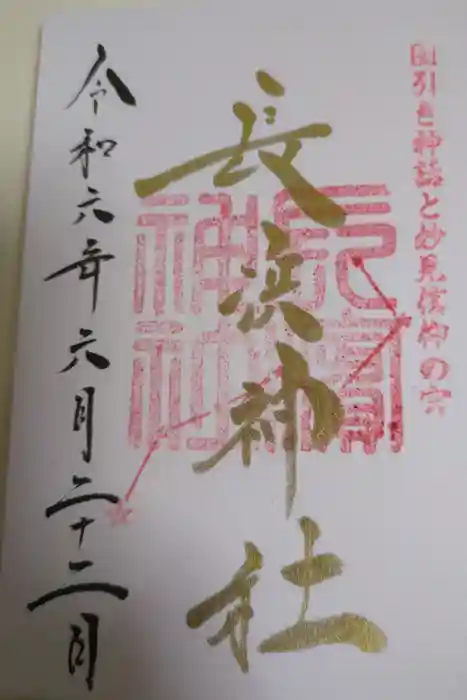 国引き神話と妙見信仰の宮
長浜神社
長濱
神社
令和六年六月二十二日